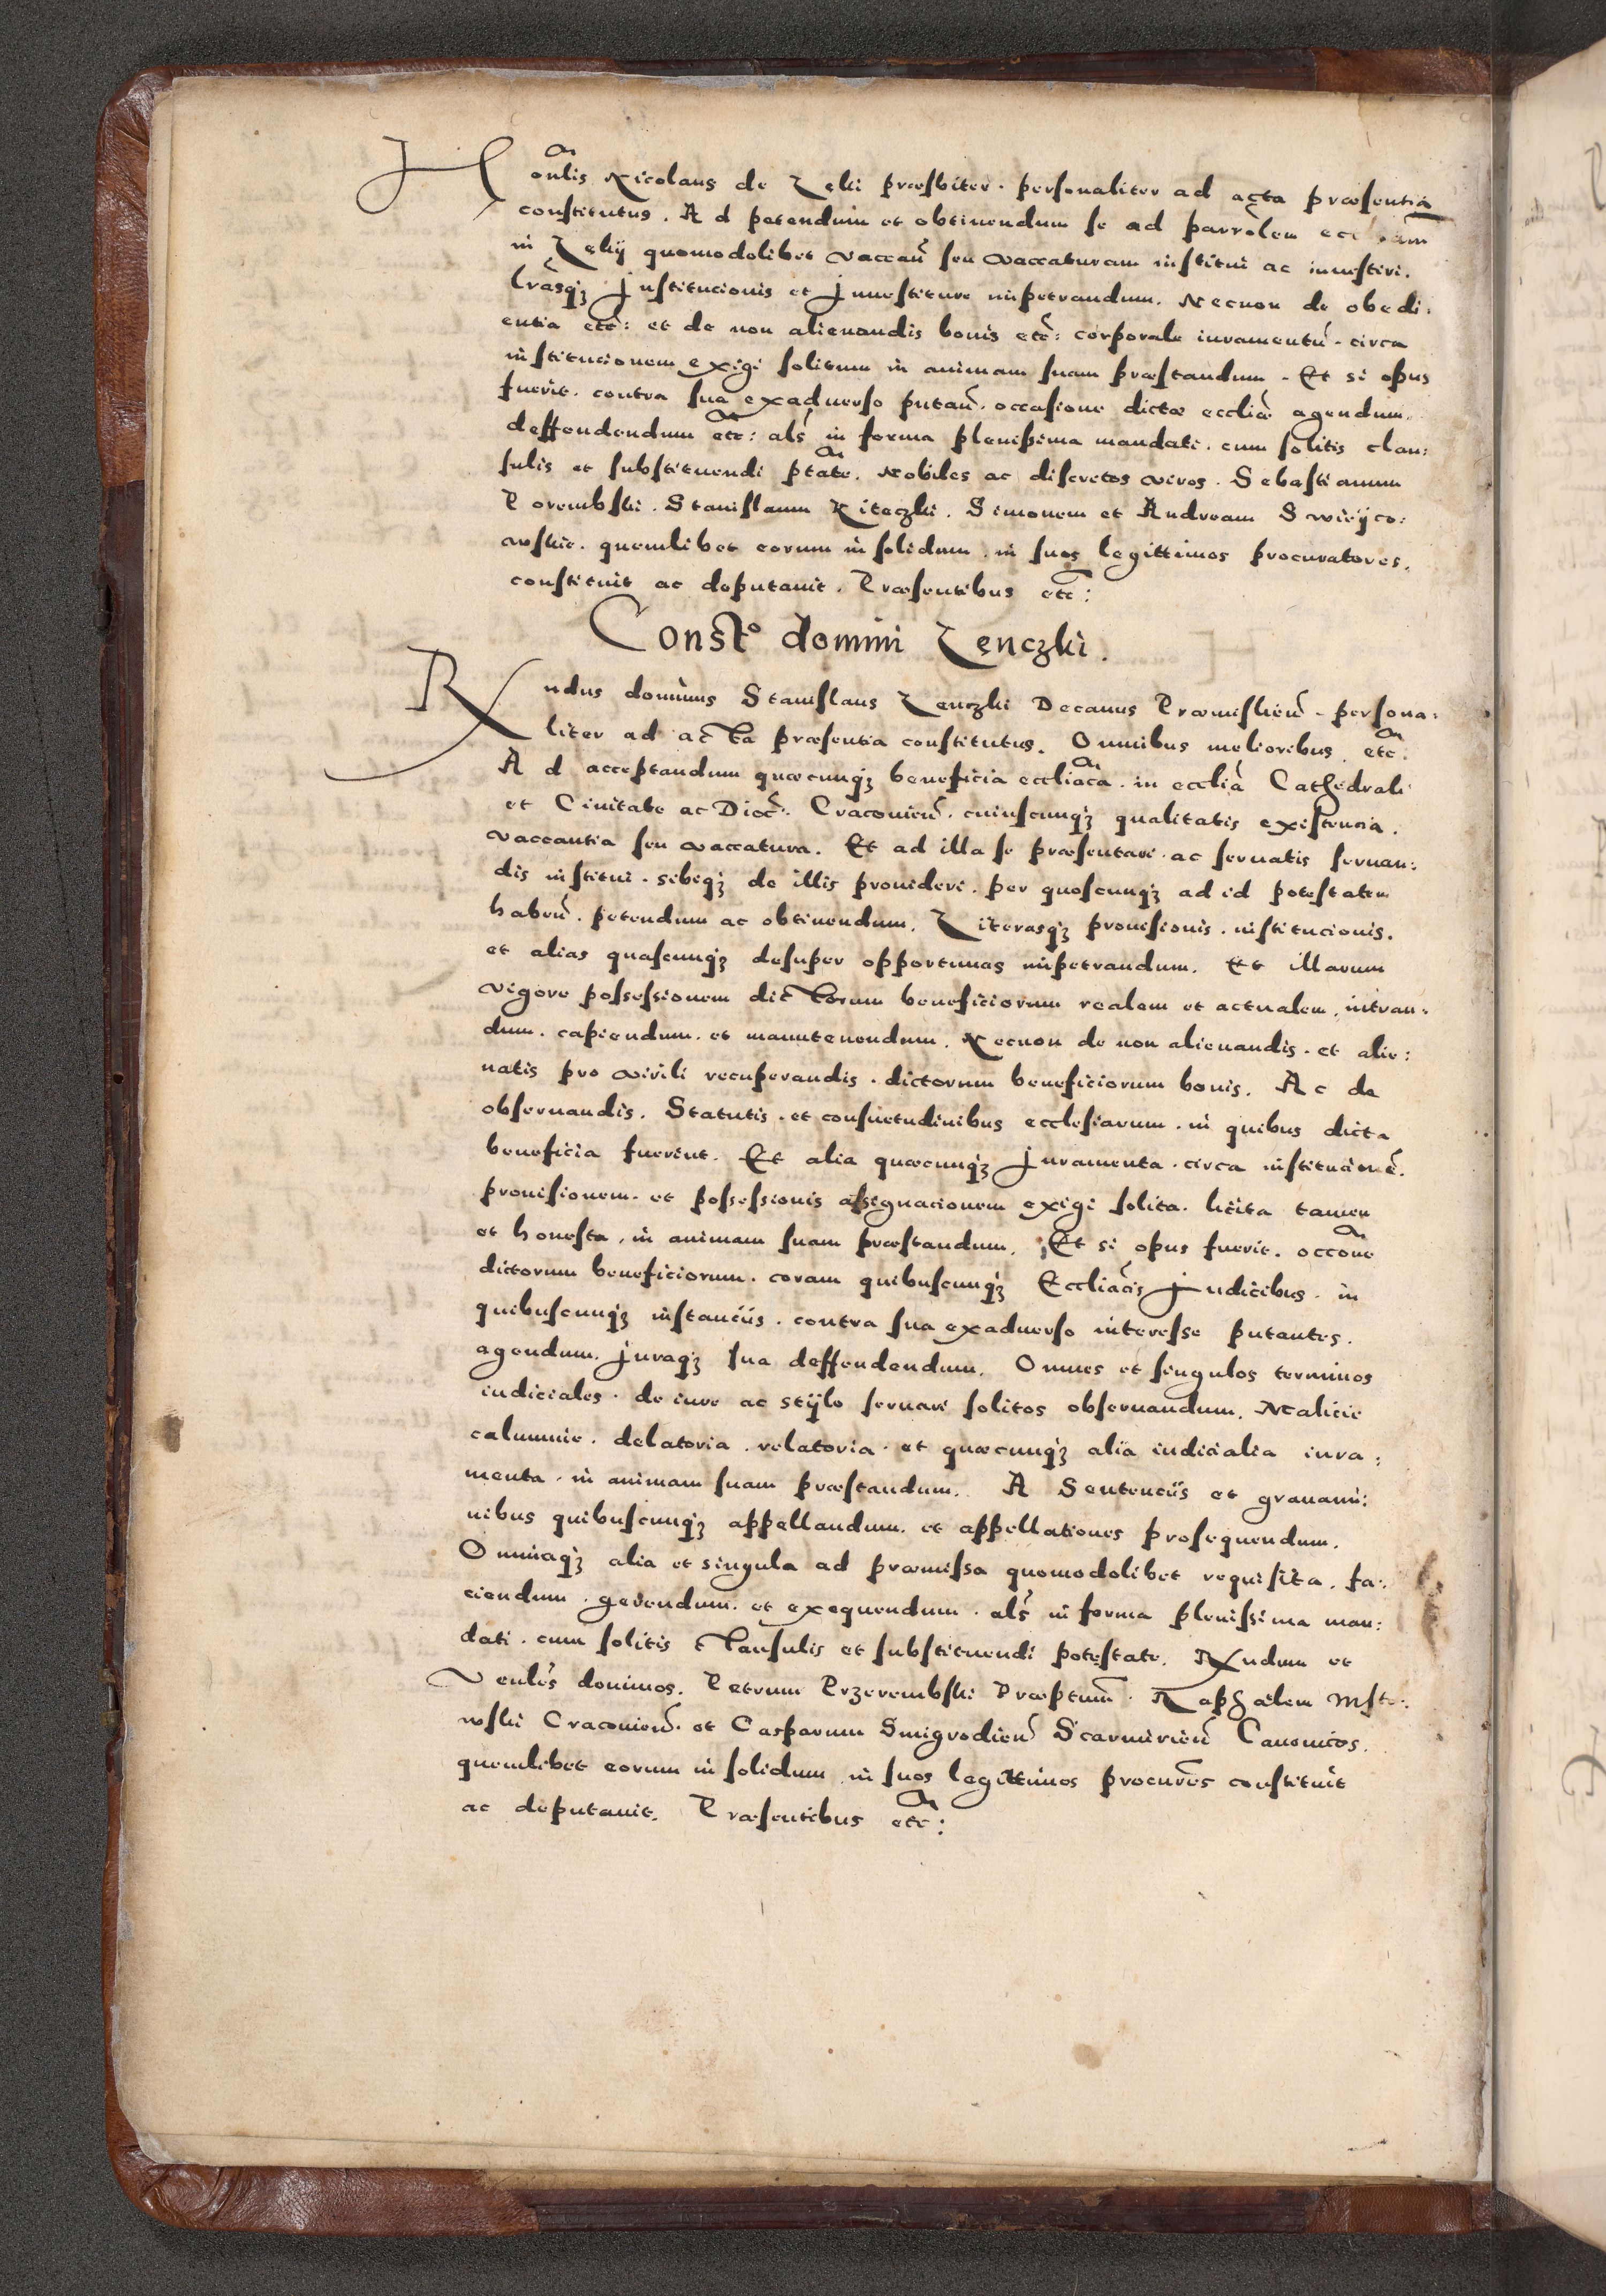 Honlis Nicolaus de Leki præsbiter. personaliter ad acta præsentia
constitutus. Ad petendum et obtinendum se ad parrolem
in Lekij quomodolibet vaccan̄ seu vaccaturam institui ac inuestiri.
l̄rasq3 Institucionis et Inuestiture impetrandum. Necnon de obedi:
entia etc̄: et de non alienandis bonis etc̄: corporale iuramentū. circa
institucionem exigi solitum in animam suam præstandum. Et si opus
fuerit. contra sua exaduerso putan̄. occasione dictæ eccliæ agendum.
deffendendum etc̄: al̄s in forma plenissima mandati. cum solitis clau:
sulis et substituendi ptāte. Nobiles ac discretos viros. Sebastianum
Porembski. Stanislaum Liteczki. Simonem et Andream Swieÿco:
wskie. quemlibet eorum in solidum. in suos legittimos procuratores.
constituit ac deputauit. Præsentibus etc̄:
Constᵒ domini Lenczki.
Rndus dominus Stanislaus Lenczki Decanus Præmislien̄. persona:
liter ad acta præsentia constitutus. Omnibus melioribus etc̄.
Ad acceptandum quæcunq3 beneficia eccliāca. in ecclīa Cathedrali
et Ciuitate ac Dioc̄. Cracouien̄. cuiuscunq3 qualitatis existencia.
vaccantia seu vaccatura. Et ad illa se præsentari. ac seruatis seruan:
dis institui. sibiq3 de illis prouideri. per quoscunq3 ad id potestatem
haben̄. petendum ac obtinendum. Literasq3 prouisionis. institucionis.
et alias quascunq3 desuper opportunas impetrandum. Et illarum
vigore possessionem dictorum beneficiorum realem et actualem. intran:
dum. capiendum. et manutenendum. Necnon de non alienandis. et alie:
natis pro virili recuperandis. dictorum beneficiorum bonis. Ac de
obseruandis. Statutis. et consuetudinibus ecclesiarum. in quibus dicta
beneficia fuerint. Et alia quæcunq3 Juramenta. circa institucionē.
prouisionem. et possessionis assignacionem exigi solita. licita tamen
et honesta. in animam suam præstandum. Et si opus fuerit. occōne
dictorum beneficiorum. coram quibuscunq3 Eccliācis Judicibus. in
quibuscunq3 instanciis. contra sua exaduerso interesse putantes.
agendum. Juraq3 sua deffendendum. Omnes et singulos terminos
iudiciales. de iure ac stÿlo seruari solitos obseruandum. Malicie
calumnie. delatoria. relatoria. et quæcunq3 alia iudicialia iura:
menta. in animam suam præstandum. A Sentenciis et grauami:
nibus quibuscunq3 appellandum. et appellationes prosequendum.
Omniaq3 alia et singula ad præmissa quomodolibet requisita. fa:
ciendum. gerendum. et exequendum. al̄s in forma plenissima man:
dati. cum solitis clausulis et substituendi potestate. Rndum et
Venl̄es dominos. Petrum Przerembski Præptum̄. Raphaelem Msto:
wski Cracouien̄. et Casparum Smigrodien̄ Scarmirien̄ Canonicos.
quemlibet eorum in solidum. in suos legittimos procur̄es constituit
ac deputauit. Præsentibus etc̄: